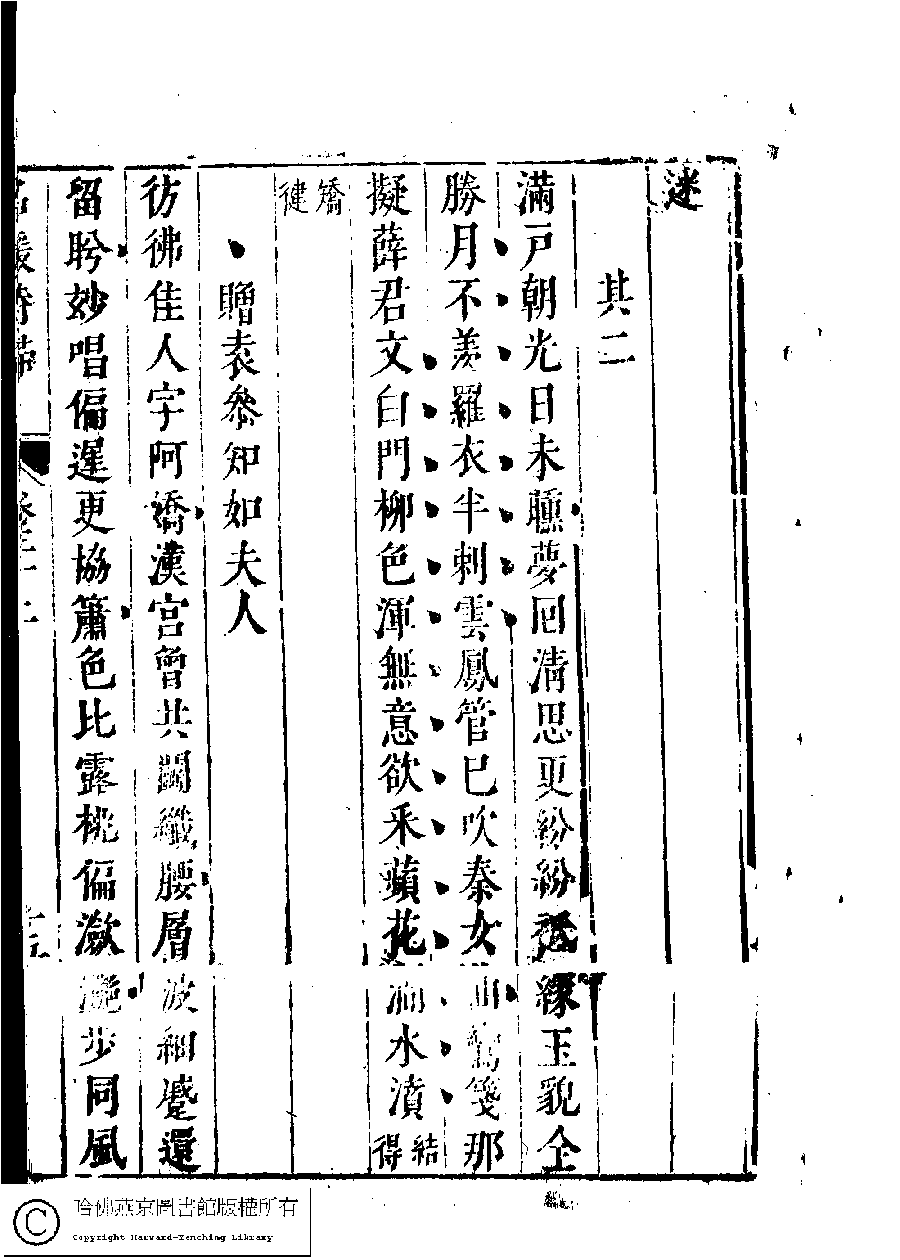 迷
其二
滿戸朝光日未曛夢回清思更紛紛 緣玉貌全
勝月不羨羅衣半剌雲鳳管已吹秦女 鸞箋那
擬薛君文白門柳色渾無意欲采蘋花湘水濆 結得
矯健
贈袁參知如夫人
彷彿佳人字阿嬌漢宮曾共鬭纖腰層波細蹙還
留肹妙唱偏遲更恊簫色比露桃偏瀲灩步同風
名媛詩歸
卷三十二
十五
哈佛燕京圖書館版權所有
Copyright Harvard-Yenching Library